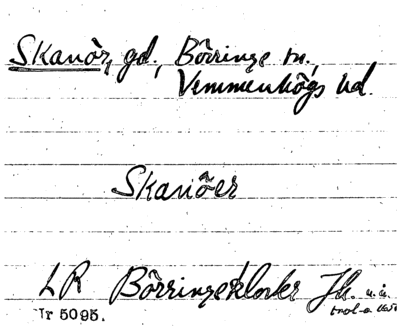 Skanör, gd., Börringe sn.,
Vemmenhögs hd.
Skanöer
LR Börringekloster Jb.
Tr 5095.